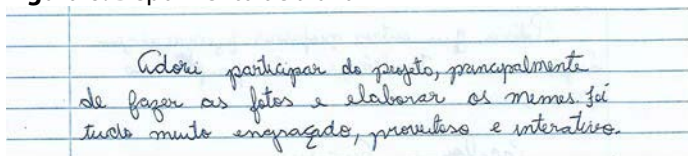 Adorei participar do projeto, principalmente
de fazer as fotos e elaborar os memes. Foi
tudo muito engraçado, proveitoso e interativo.